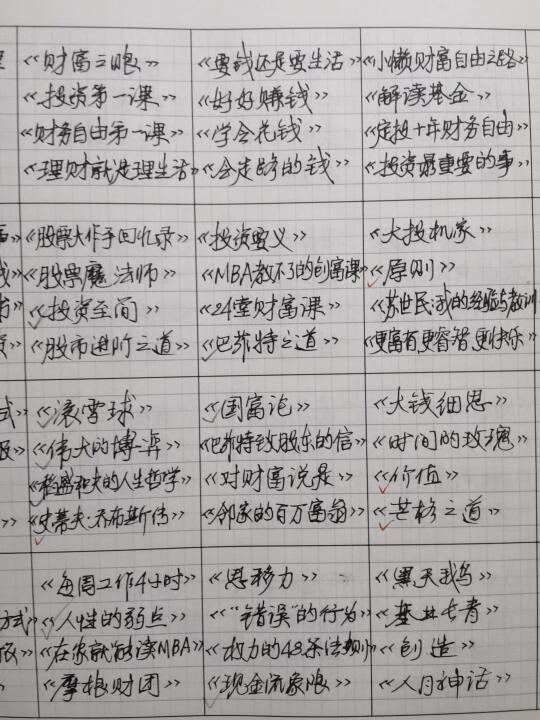 《财富之眼》 《要钱还是要生活》 《小懒财富自由之路》
《投资第一课》 《好好赚钱》 《解读基金》
《财务自由第一课》 《学会花钱》 《定投十年财务自由》
《理财就是理生活》 《会走路的钱》 《投资最重要的事》
《股票大作手回忆录》 《投资要义》 《大投机家》
《股票魔法师》 《MBA教不了的创富课》 《原则》
《投资至简》 《24堂财富课》 《苏世民:我的经验与教训》
《股市进阶之道》 《巴菲特之道》 《更富有更睿智更快乐》
式》 《滚雪球》 《国富论》 《大钱细思》
《伟大的博弈》 《巴菲特致股东的信》 《时间的玫瑰》
《稻盛和夫的人生哲学》 《对财富说是》 《价值》
《史蒂夫·乔布斯传》 《邻家的百万富翁》 《芒格之道》
《每周工作4小时》 《思考力》 《黑天鹅》
方式》 《人性的弱点》 《“错误”的行为》 《基业长青》
《在家就能读MBA》 《权力的48条法则》 《创造》
《摩根财团》 《现金流象限》 《人月神话》